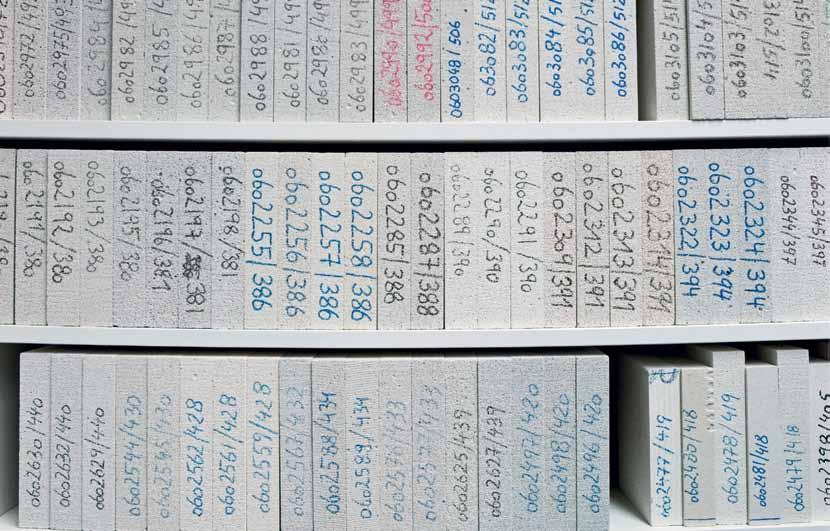 0602972/499
0602982/499
0602985/499
0602986/499
0602987/499
0602988/499
0602981/499
0602983/499
0602992/500
0603048/506
0603082/512
0603083/512
0603084/512
0603085/512
0603086/512
0602191/380
0602192/380
0602193/380
0602195/380
0602196/381
0602197/381
0602198/381
0602255/386
0602256/386
0602257/386
0602258/386
0602285/388
0602287/388
0602289/390
0602290/390
0602291/390
0602309/391
0602312/391
0602313/391
0602314/391
0602322/394
0602323/394
0602324/394
0602344/397
0602345/397
0602630/440
0602632/440
0602629/440
0602544/430
0602545/430
0602562/428
0602561/428
0602559/428
0602567/432
0602588/434
0602589/434
0602576/433
0602577/433
0602625/439
0602627/439
0602497/420
0602498/420
0602496/420
0602477/419
0602478/419
0602481/418
0602479/418